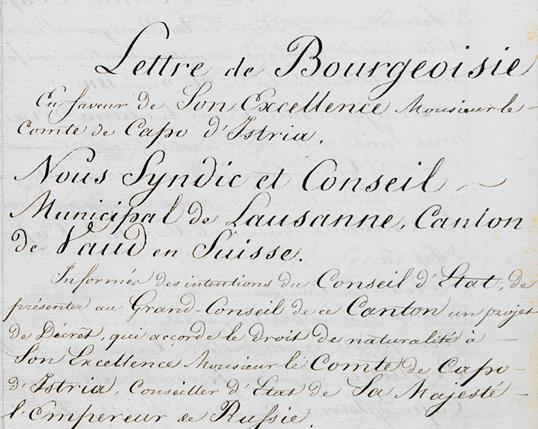 Lettre de Bourgeoisie
En faveur de Son Excellence Monsieur le
Comte de Capo d'Istria.
Nous Syndic et Conseil
Municipal de Lausanne, Canton
de Vaud en Suisse.
Informés des intentions du Conseil d'Etat, de
présenter au Grand-Conseil de ce Canton un projet
de Décret, qui accorde le droit de naturalité à
Son Excellence Monsieur le Comte de Capo
d'Istria, Conseiller d'Etat de Sa Majesté
l'Empereur de Russie.